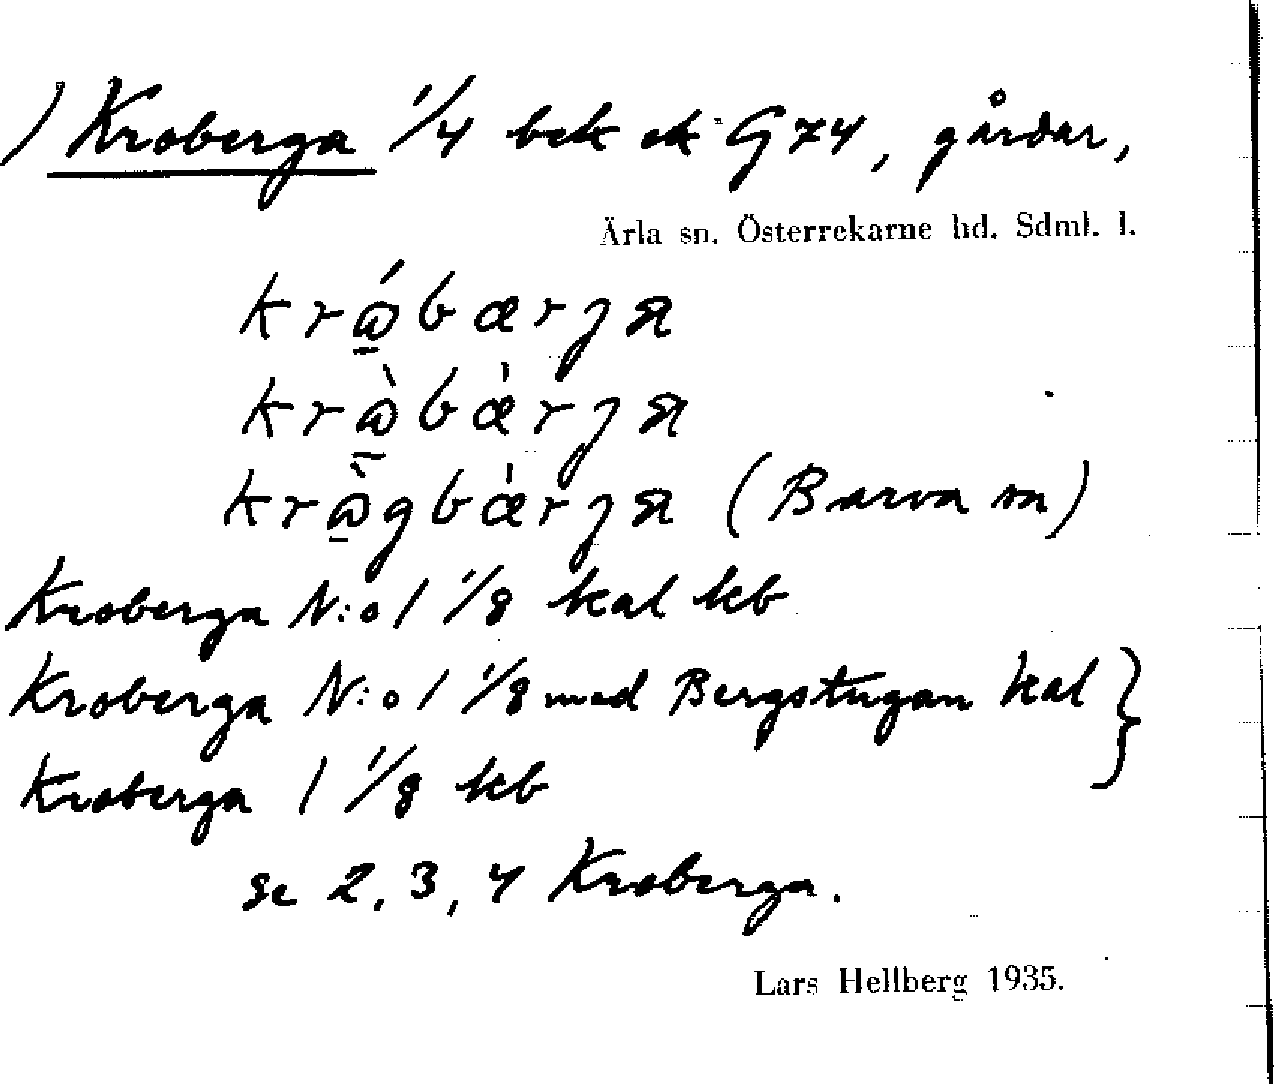 ) Kroberga 1/4 bek ek G74, gårdar,
Ärla sn. Österrekarne hd. Sdml. l.
krώ̲bærȷa
krὼ̲bæ̀rȷa
krὼ̲gbæ̀rȷa (Barva sn)
Kroberga N:o 1 1/8 kal kb
Kroberga N:o 1 1/8 med Bergstugan kal }
Kroberga 1 1/8 kb
se 2, 3, 4 Kroberga.
Lars Hellberg 1935.